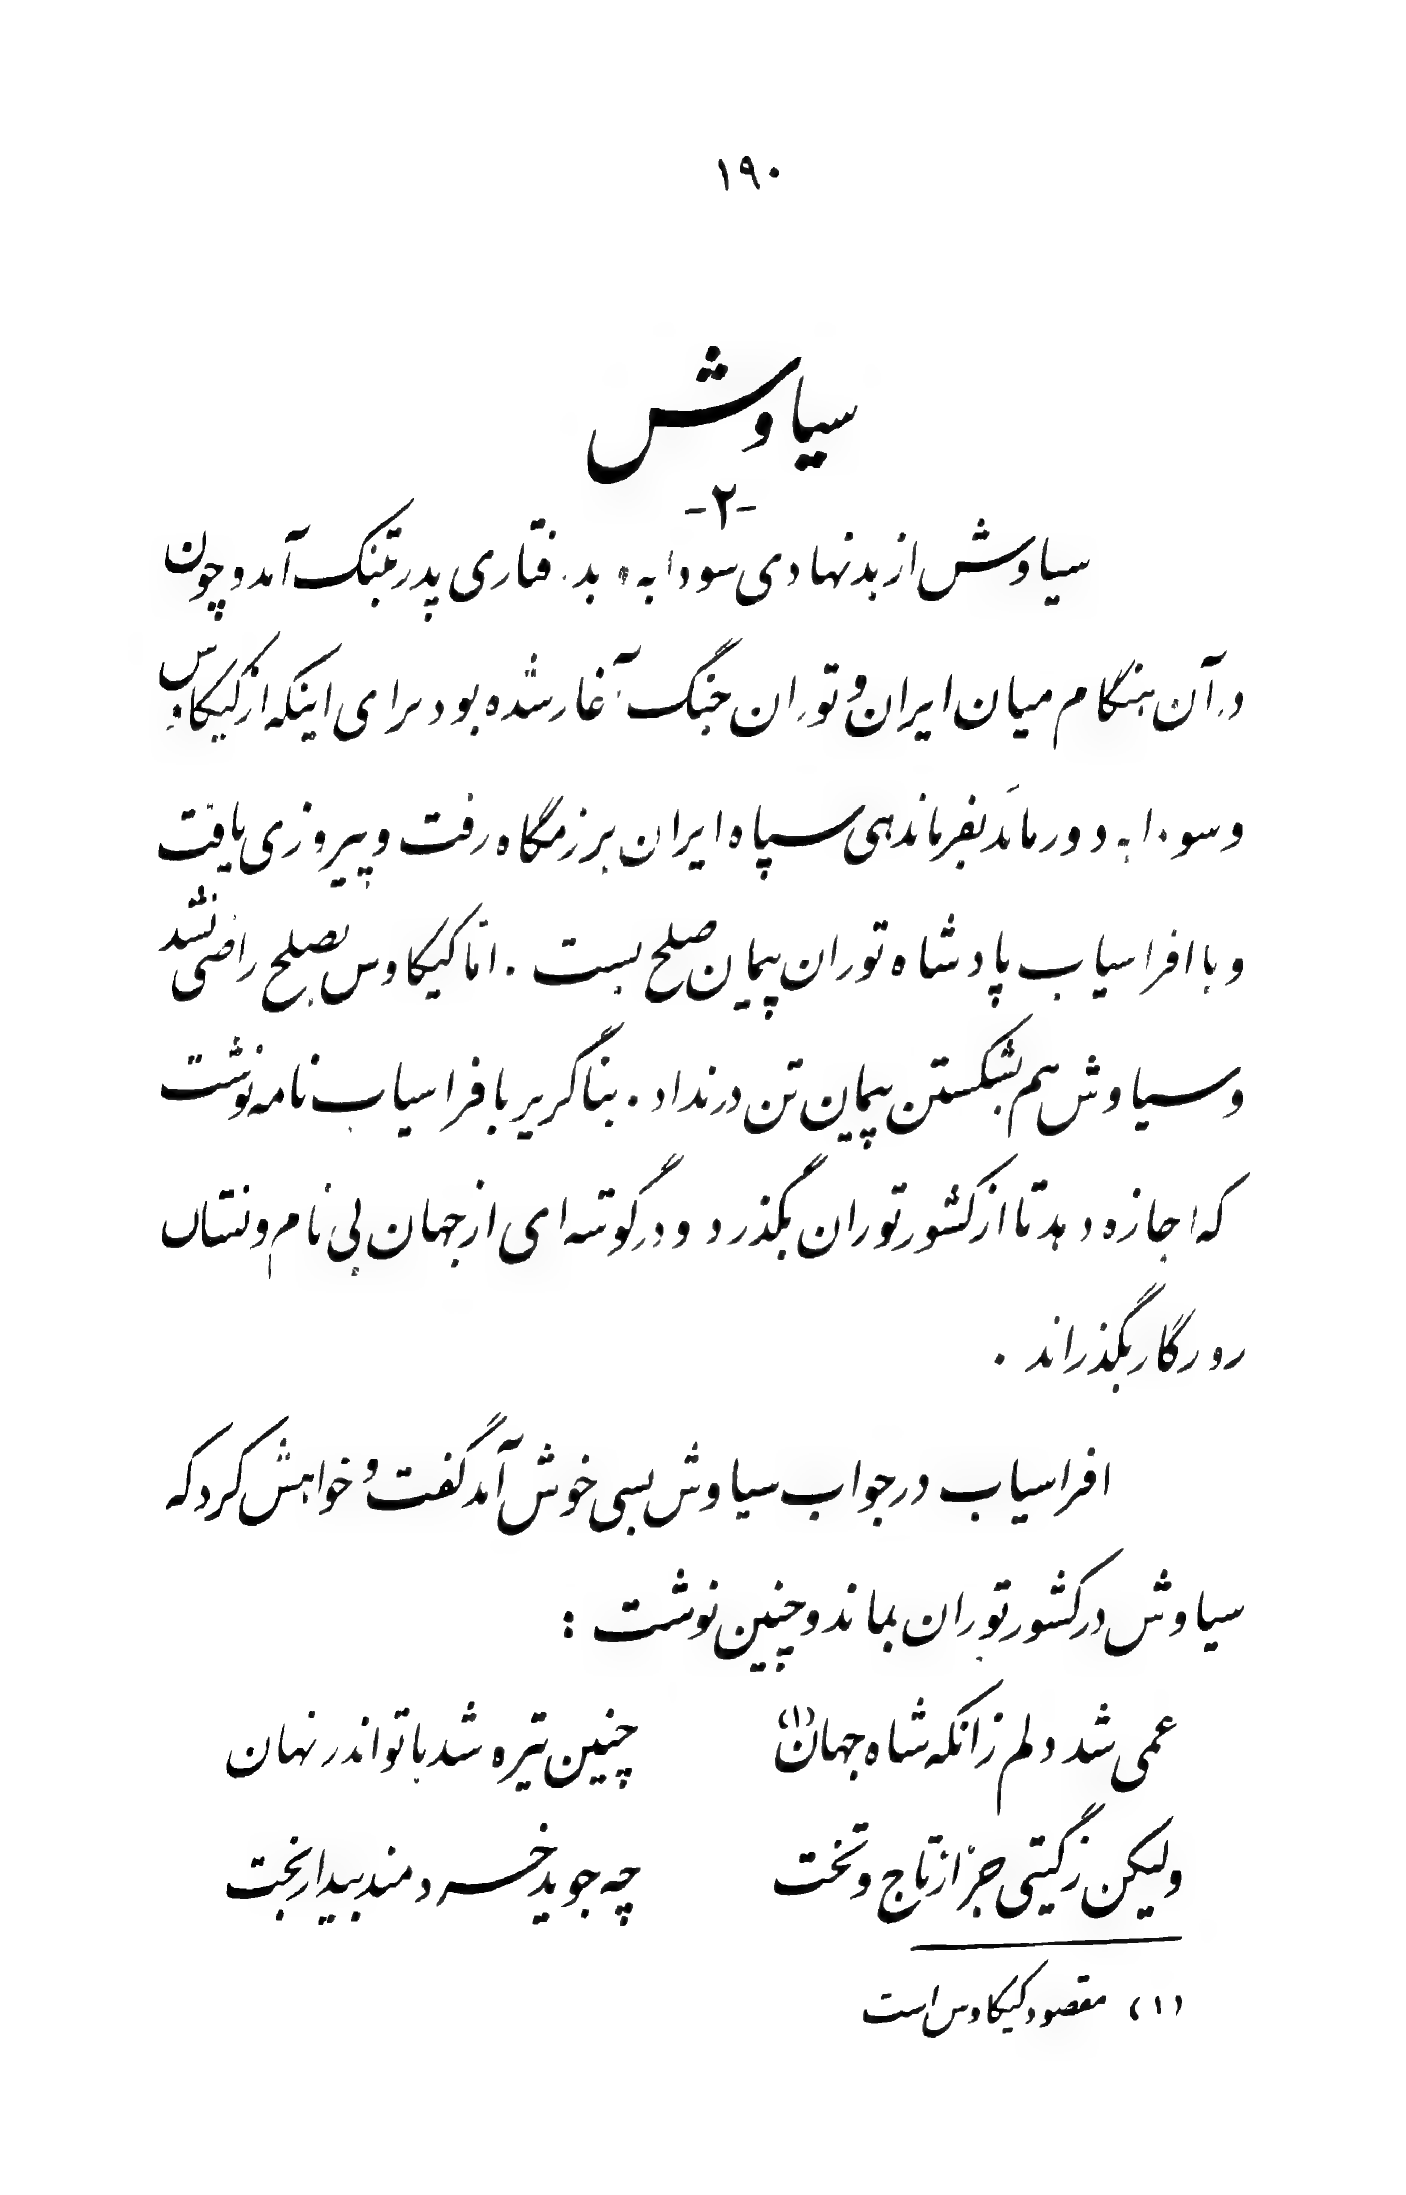 ۱۹۰
سیاوش
-۲-
سیاوش از بدنهادی سودابه و بدرفتاری پدر بتنگ آمد و چون
در آن هنگام میان ایران و توران جنگ آغاز شده بود برای اینکه از کیکاوس
و سودابه دور ماند بفرماندهی سپاه ایران برزمگاه رفت و پیروزی یافت
و با افراسیاب پادشاه توران پیمان صلح بست . امّا کیکاوس بصلح راضی نشد
و سیاوش هم بشکستن پیمان تن در نداد . بناگزیر بافراسیاب نامه نوشت
که اجازه دهد تا از کشور توران بگذرد و در گوشه‌ای از جهان بی نام و نشان
روزگار بگذراند .
افراسیاب در جواب سیاوش بسی خوش آمد گفت و خواهش کرد که
سیاوش در کشور توران بماند و چنین نوشت :
غمی شد دلم زانکه شاه جهان (۱) چنین تیره شد با تو اندر نهان
ولیکن ز گیتی جز از تاج و تخت چه جوید خردمند بیدار بخت
(۱) مقصود کیکاوس است